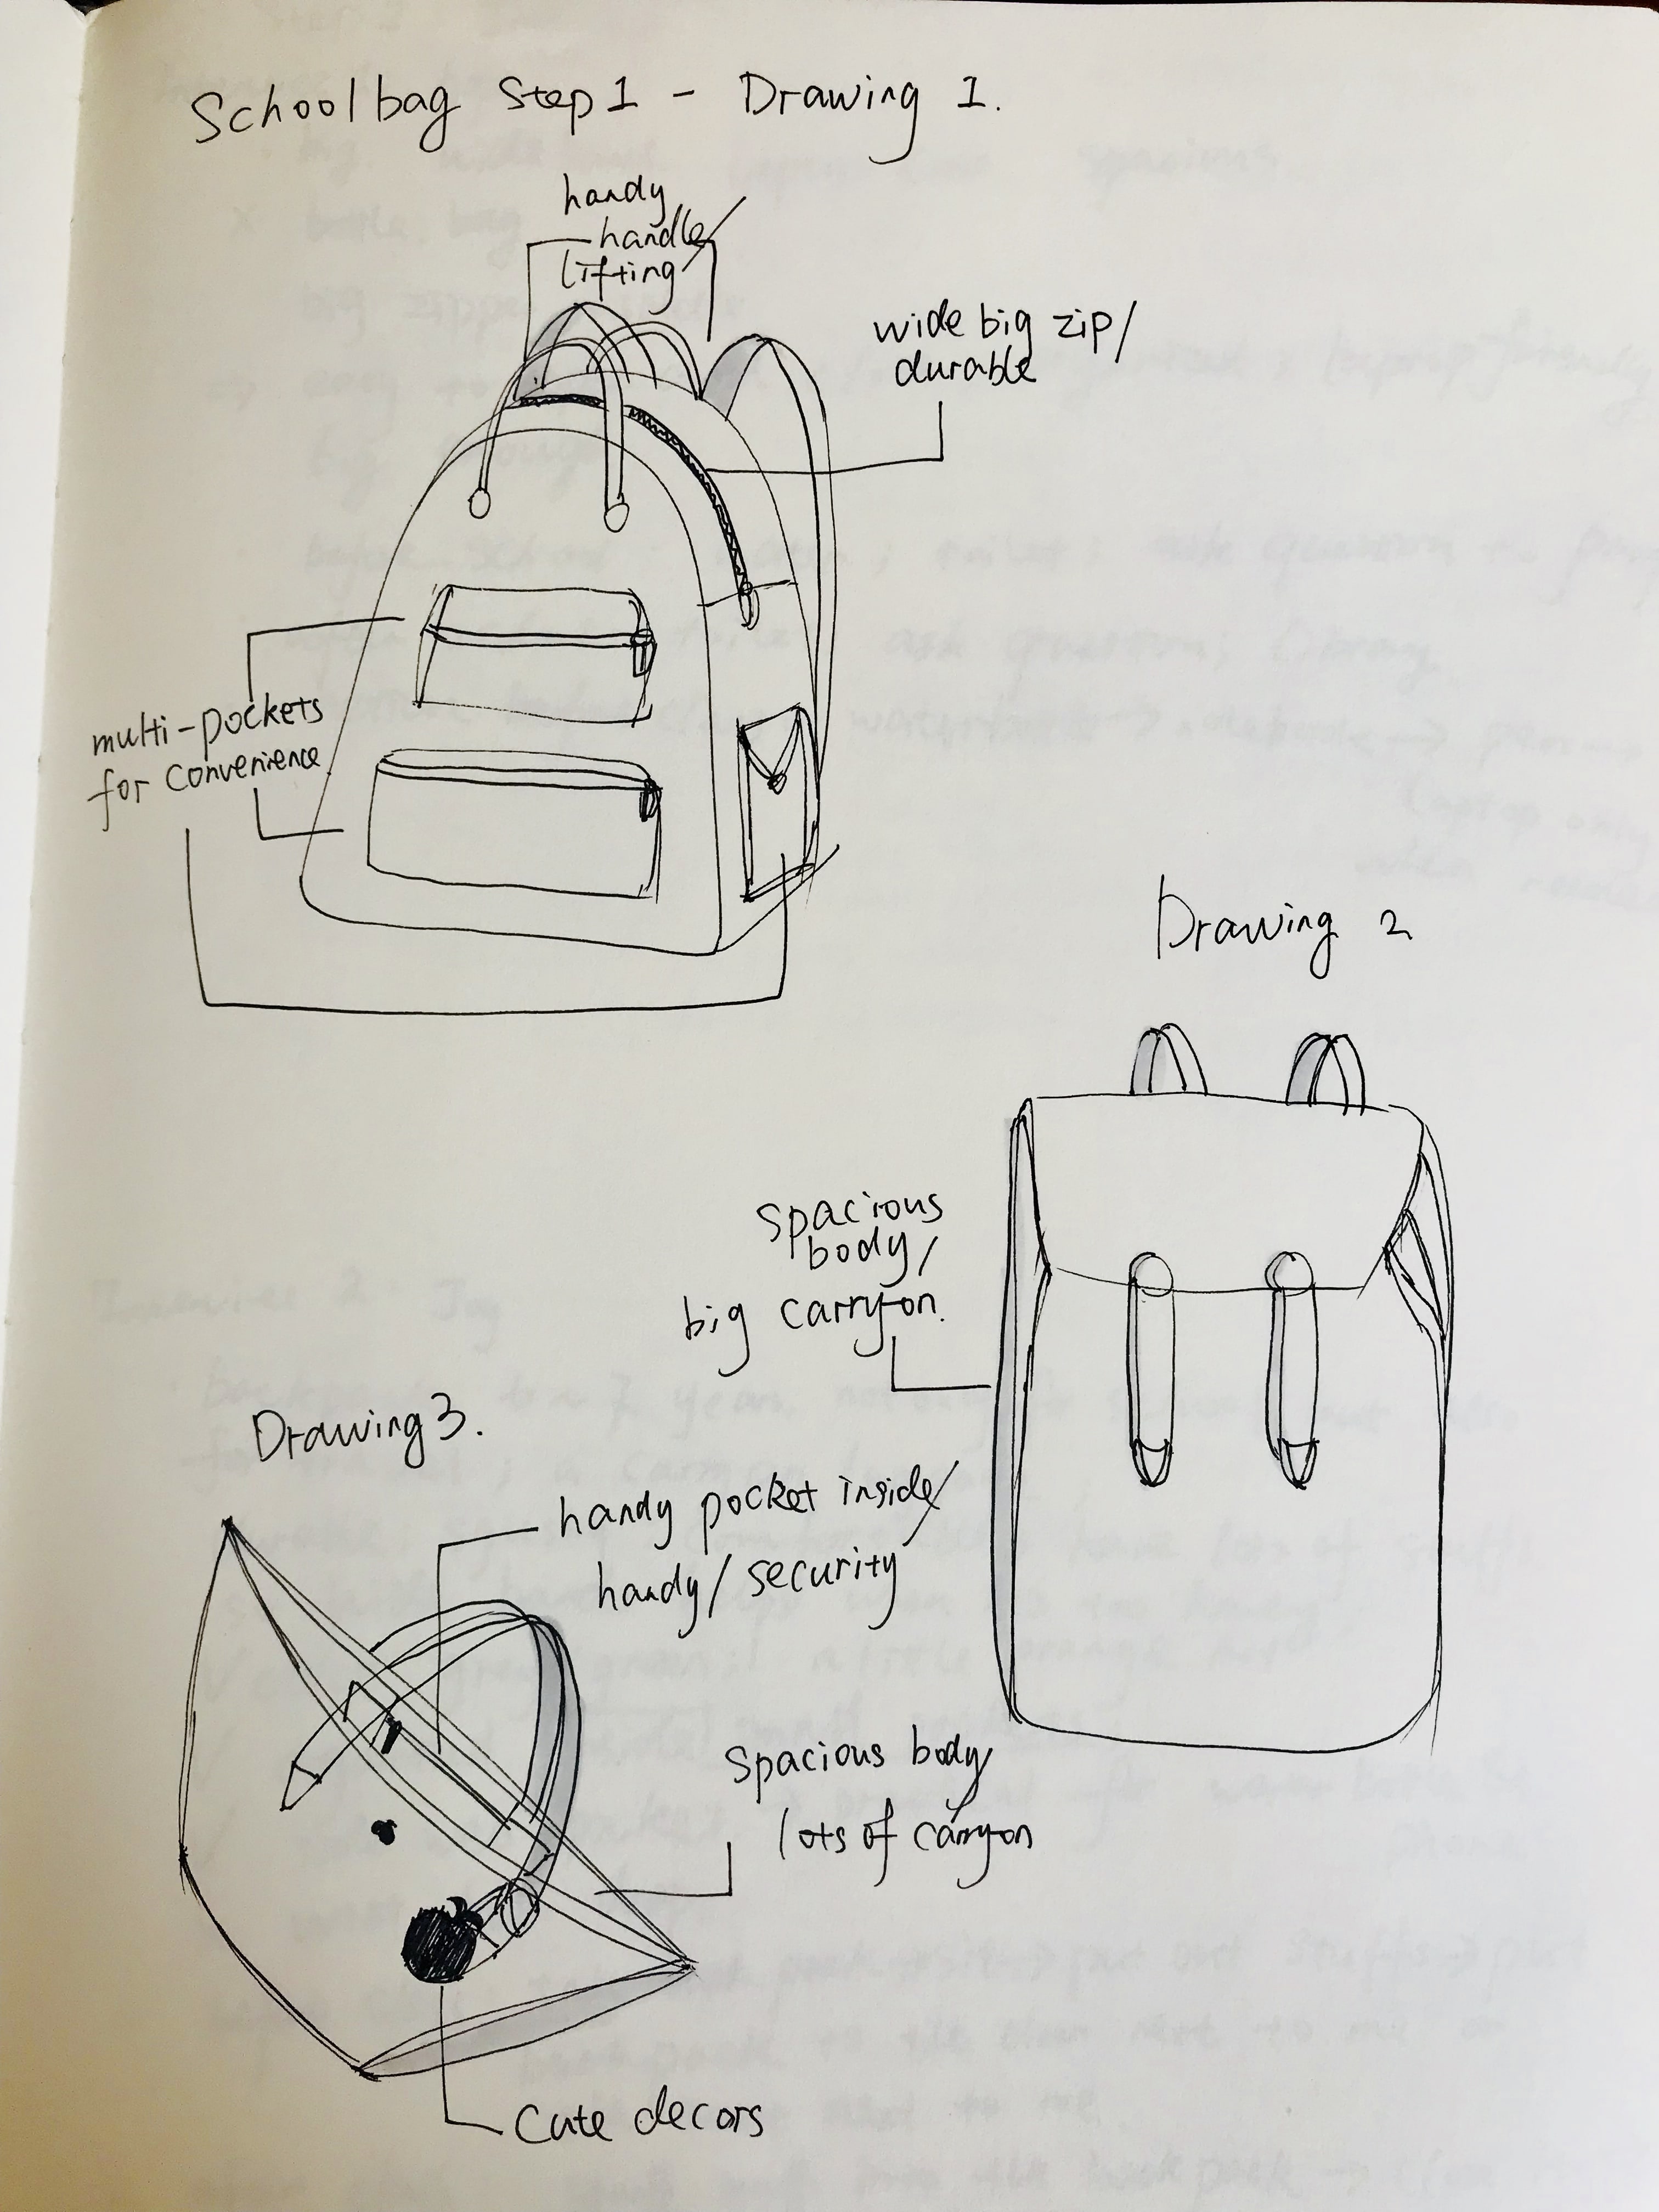 Schoolbag Step 1 - Drawing 1.
handy
handle/
lifting
wide big zip/
durable
multi-pockets
for convenience
Drawing 2
spacious
body/
big carry-on.
Drawing 3.
handy pocket inside/
handy/security
spacious body/
lots of carryon
Cute decors